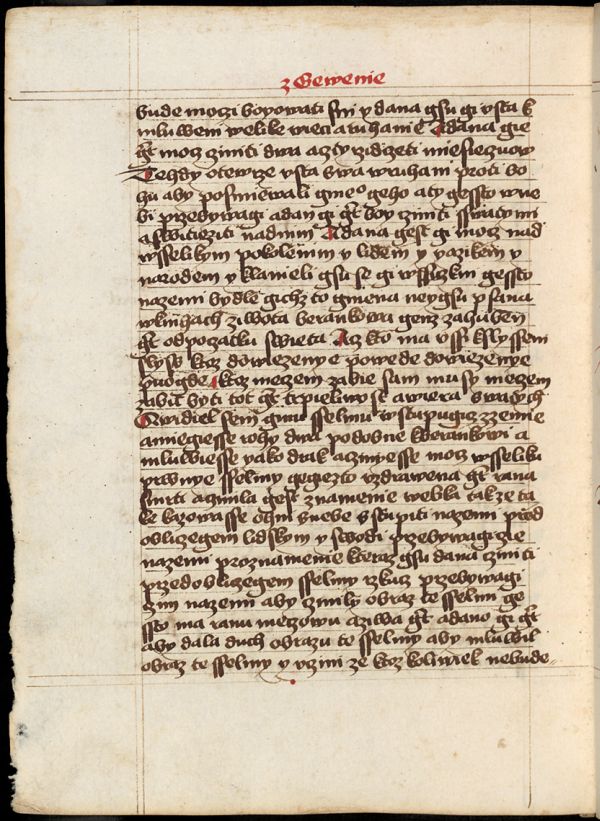 z Gewenie
bude moczi boyowati s ni y dana gsu gi vsta k
mluweni welike wieci a ruhanie A dana gie
gt mocz ziniti dwa a czty rzidzeti miesieczuow
Tehdy otewrze vsta swa w ruhani proti bo
hu aby posmiewali gmeo geho a ty gessto w ne
bi przebywagi a dan gi gt boy ziniti s swatymi
a switieziti nad nimi A dana gest gi mocz nad
wsselikym pokolenim y lidem y yazikem y
narodem y klanieli gsu se gi wssiczkni gessto
na zemi bydle gichz to gmena neygsu psana
w knihach ziwota berankowa genz zahuben
gt od poczatku swieta Acz kto ma vssi kslyssení
slyss ktoz dowiezenye powede dowiezenye
puogde ktoz meczem zabie sam musy meczem
zabit byti tot gt trpieliwost a wiera swatych
Gwidiel sem ginu sselmu wstupugicz z zemie
a miegiesse rohy dwa podobne k berankowi a
mluwiesse yako drak a czinyesse mocz wsseliku
prwnye sselmy gegiezto vzdrawena gt rana
smrti a czinila gest znamenie welika takze ta
ke kazowasse ohni s nebe sstupiti na zemi przed
obliczegem lidskym y swodi przebywagicie
na zemi pro znamenie kteraz gsu dana cziniti
przed obliczegem sselmy rzkucz przebywagi
czim na zemi aby czinily obraz te sselmi ge
ssto ma ranu meczowu a ziwa gt a dano gi gt
aby dala duch obrazu te sselmy aby mluwil
obraz te sselmy y vczini ze ktoz koliwiek nebude